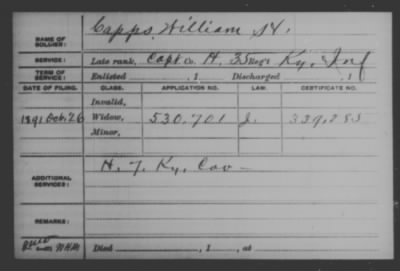 NAME OF SOLDIER: Capps, William H.
SERVICE: Late rank, Capt Co. H, 35 Reg't Ky. Inf
TERM OF SERVICE: Enlisted , 1 Discharged , 1
DATE OF FILING. CLASS. APPLICATION NO. LAW. CERTIFICATE NO.
Invalid,
1891 Oct. 26 Widow, 530,701 J.
Minor,
ADDITIONAL SERVICES: H. 7. Ky. Cav –
REMARKS:
Died , 1 , at